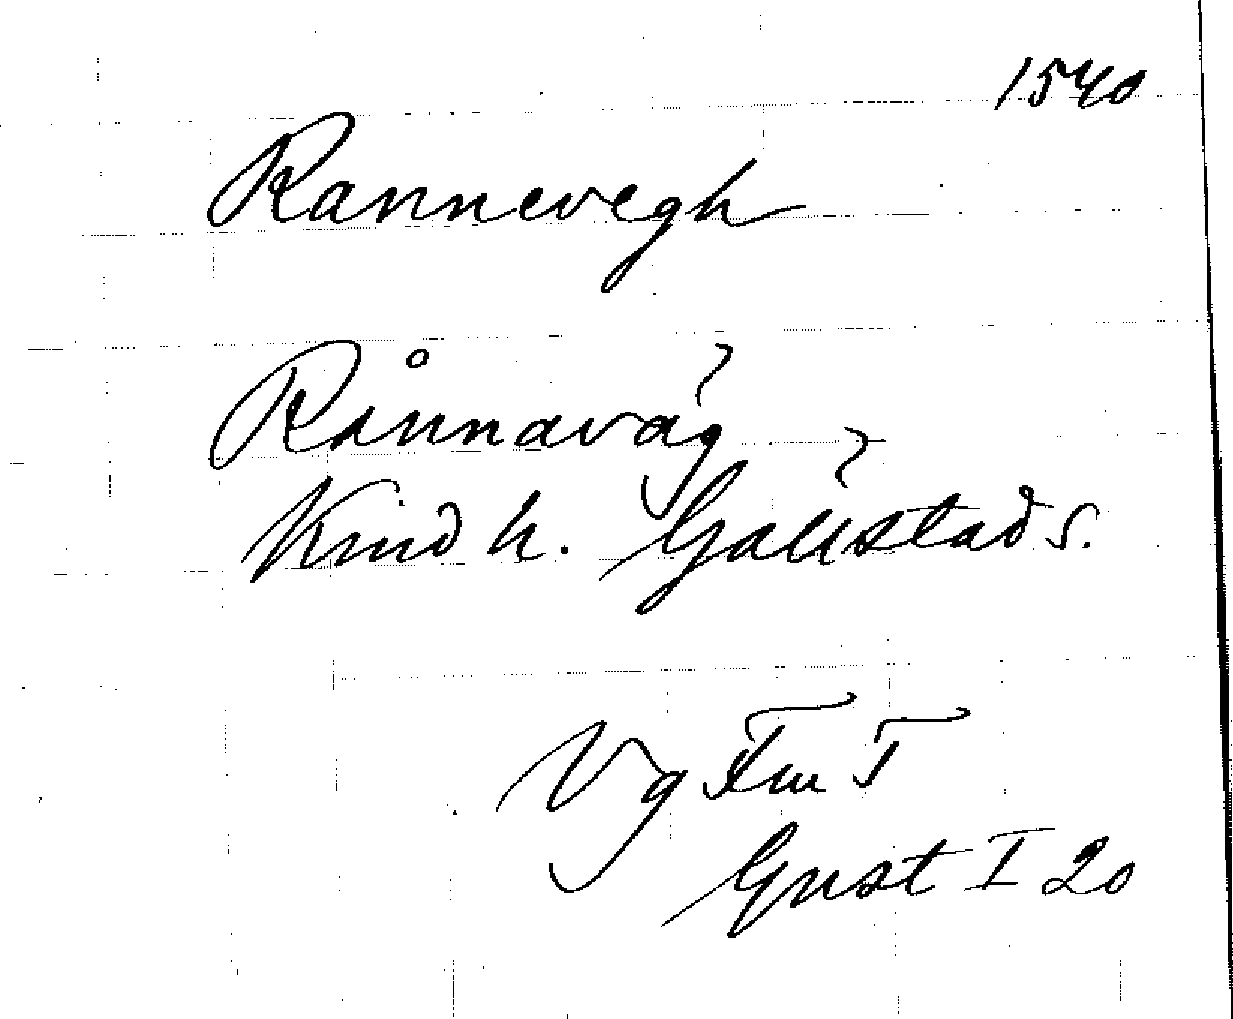 1540
Rannevegh
Rånnaväg
Kind h. Gällstad s.
Vg Fm T
Gust I 20